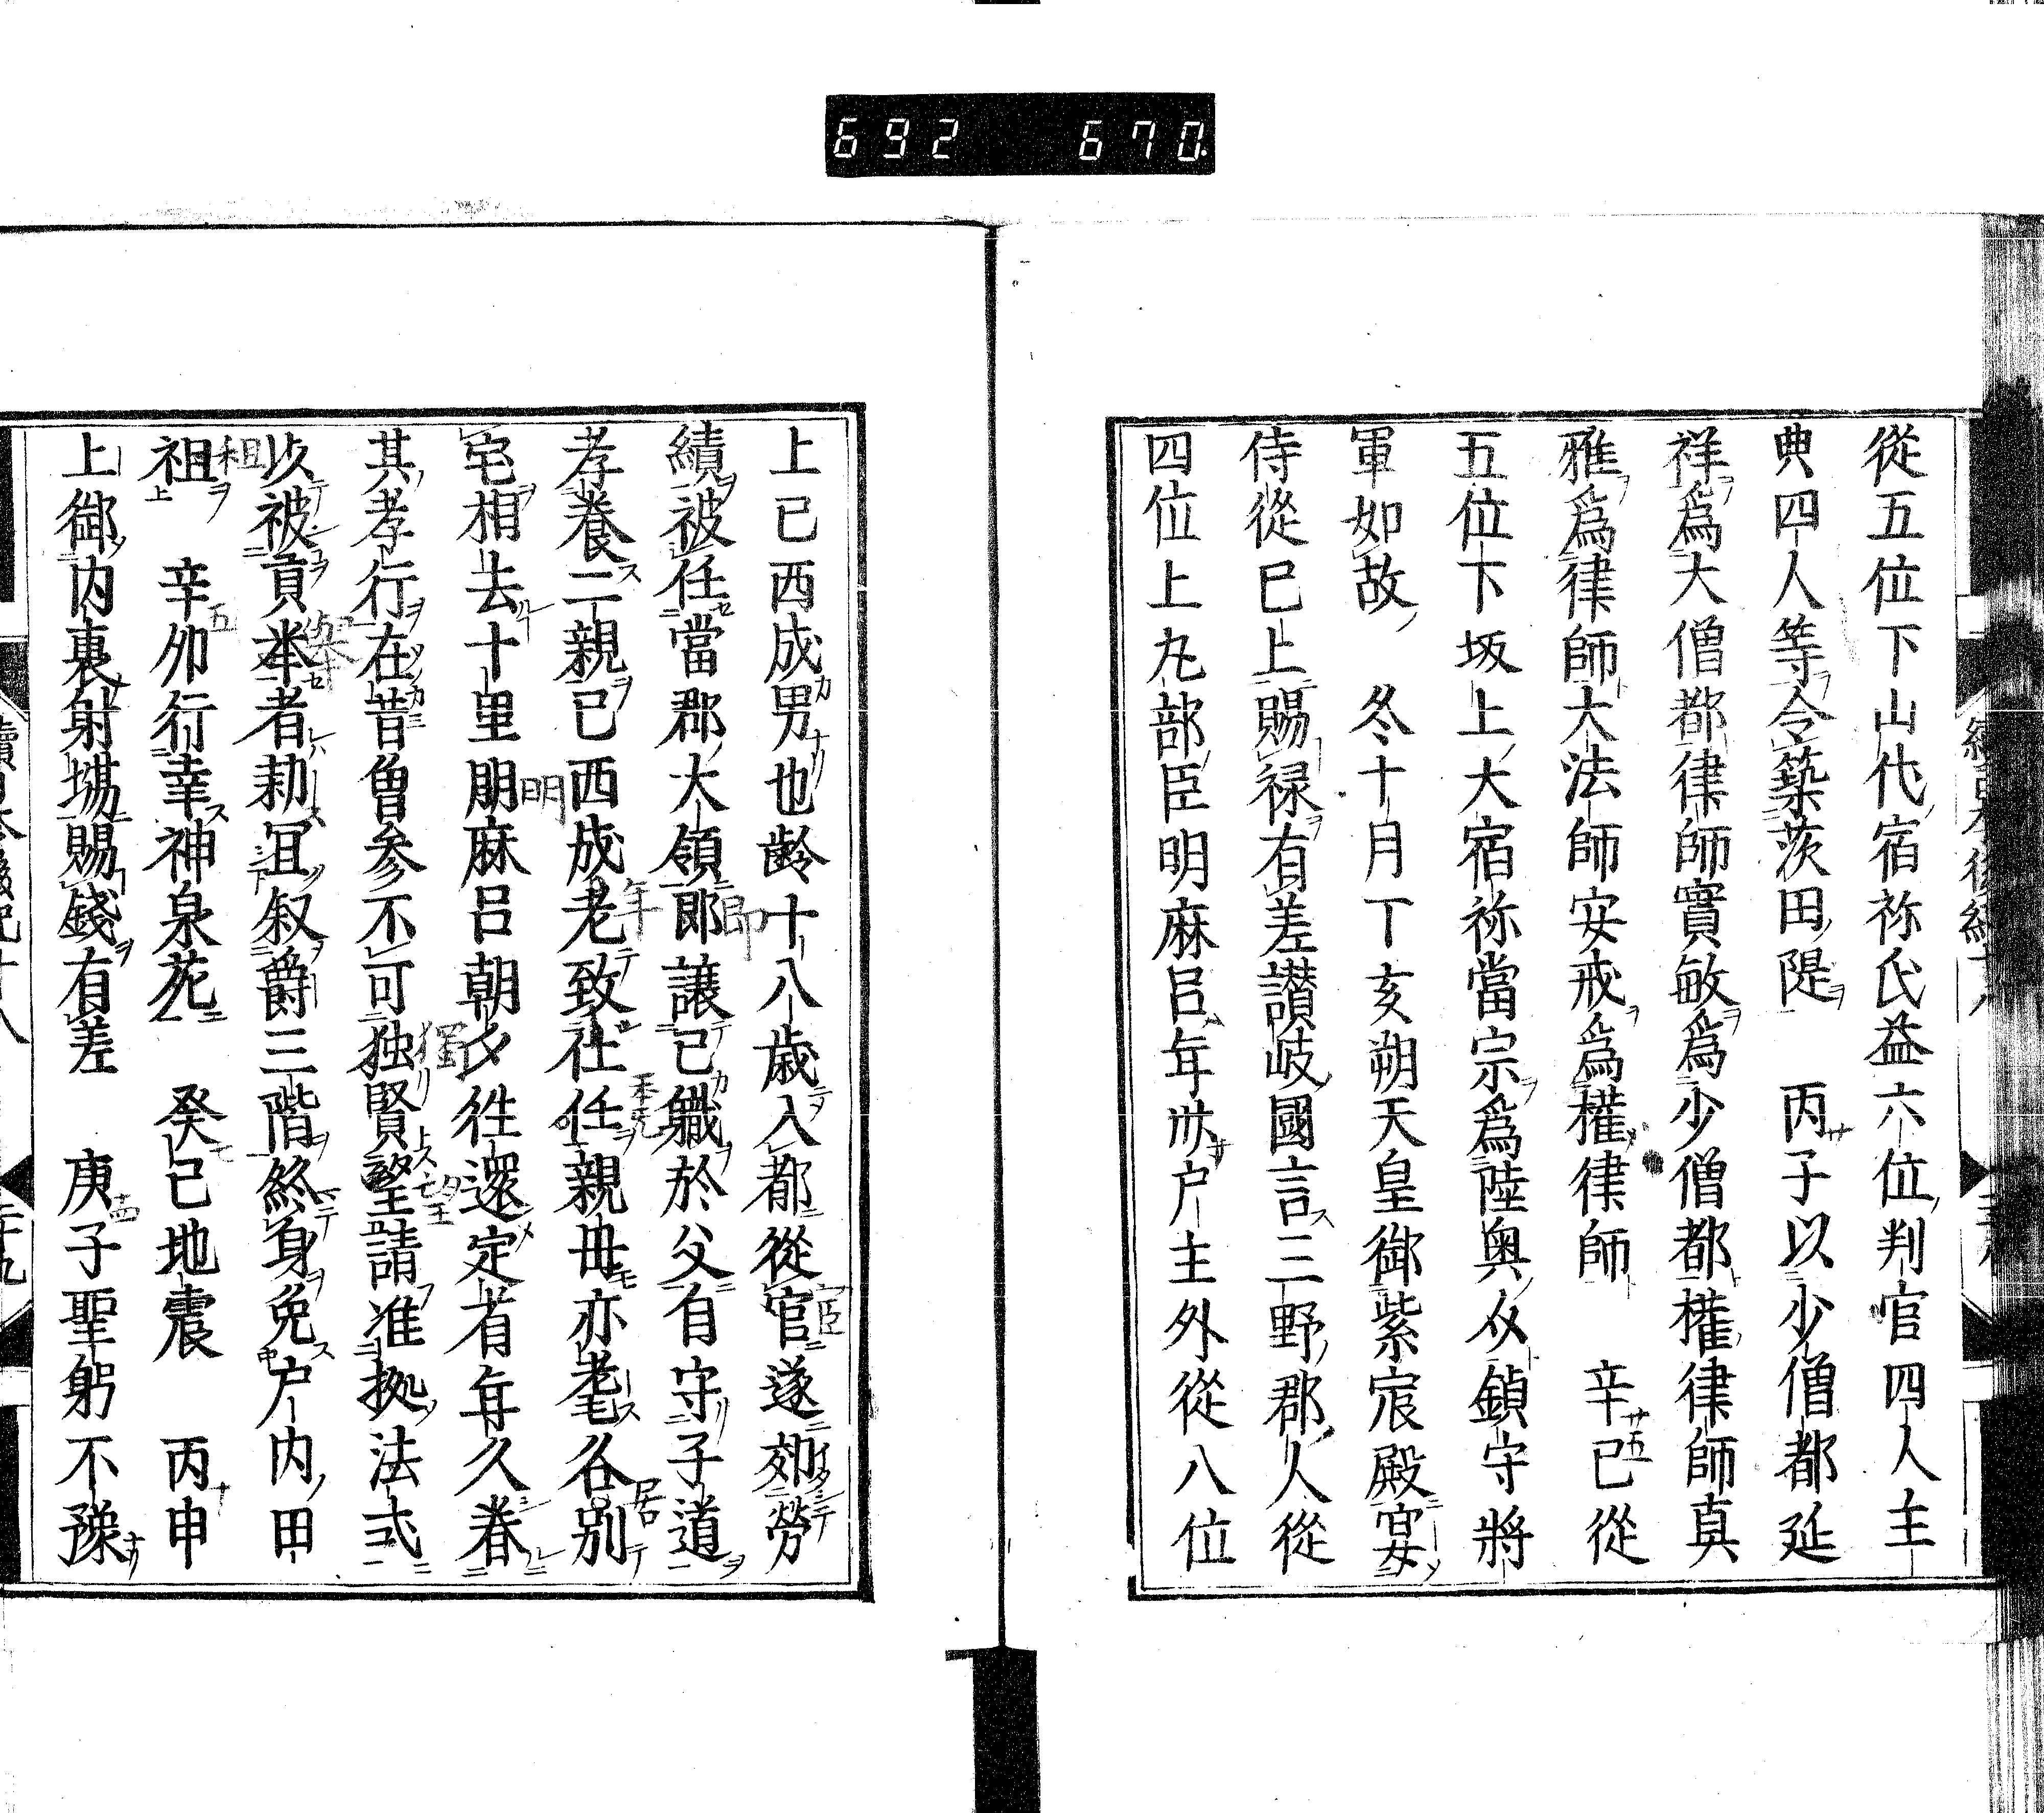 692 670
從五位下山代宿祢氏益六位判官四人主
典四人等令築茨田隄　丙子以少僧都延
祥爲大僧都律師實敏爲少僧都權律師真
雅爲律師大法師安戒爲權律師　辛巳從
五位下坂上大宿祢當宗爲陸奧鎮守將
軍如故　冬十月丁亥朔天皇御紫宸殿宴
侍從已上賜禄有差讃岐國言三野郡人從
四位上丸部臣明麻呂年卅户主外從八位
上己西成男也齡十八歳入都從官遂効勞
績被任當郡大領郎譲己軄於父自守子道
孝養二親己西成老致仕任親毋亦耄各別
宅相去十里朋麻呂朝夕徃還定省年久眷
其孝行在昔曽参不可独賢望請准拠法式
以被貢举者勅冝叙爵三階終身免户内田
祖　辛卯行幸神泉苑　癸巳地震　丙申
上御内裏射場賜錢有差　庚子聖躬不豫